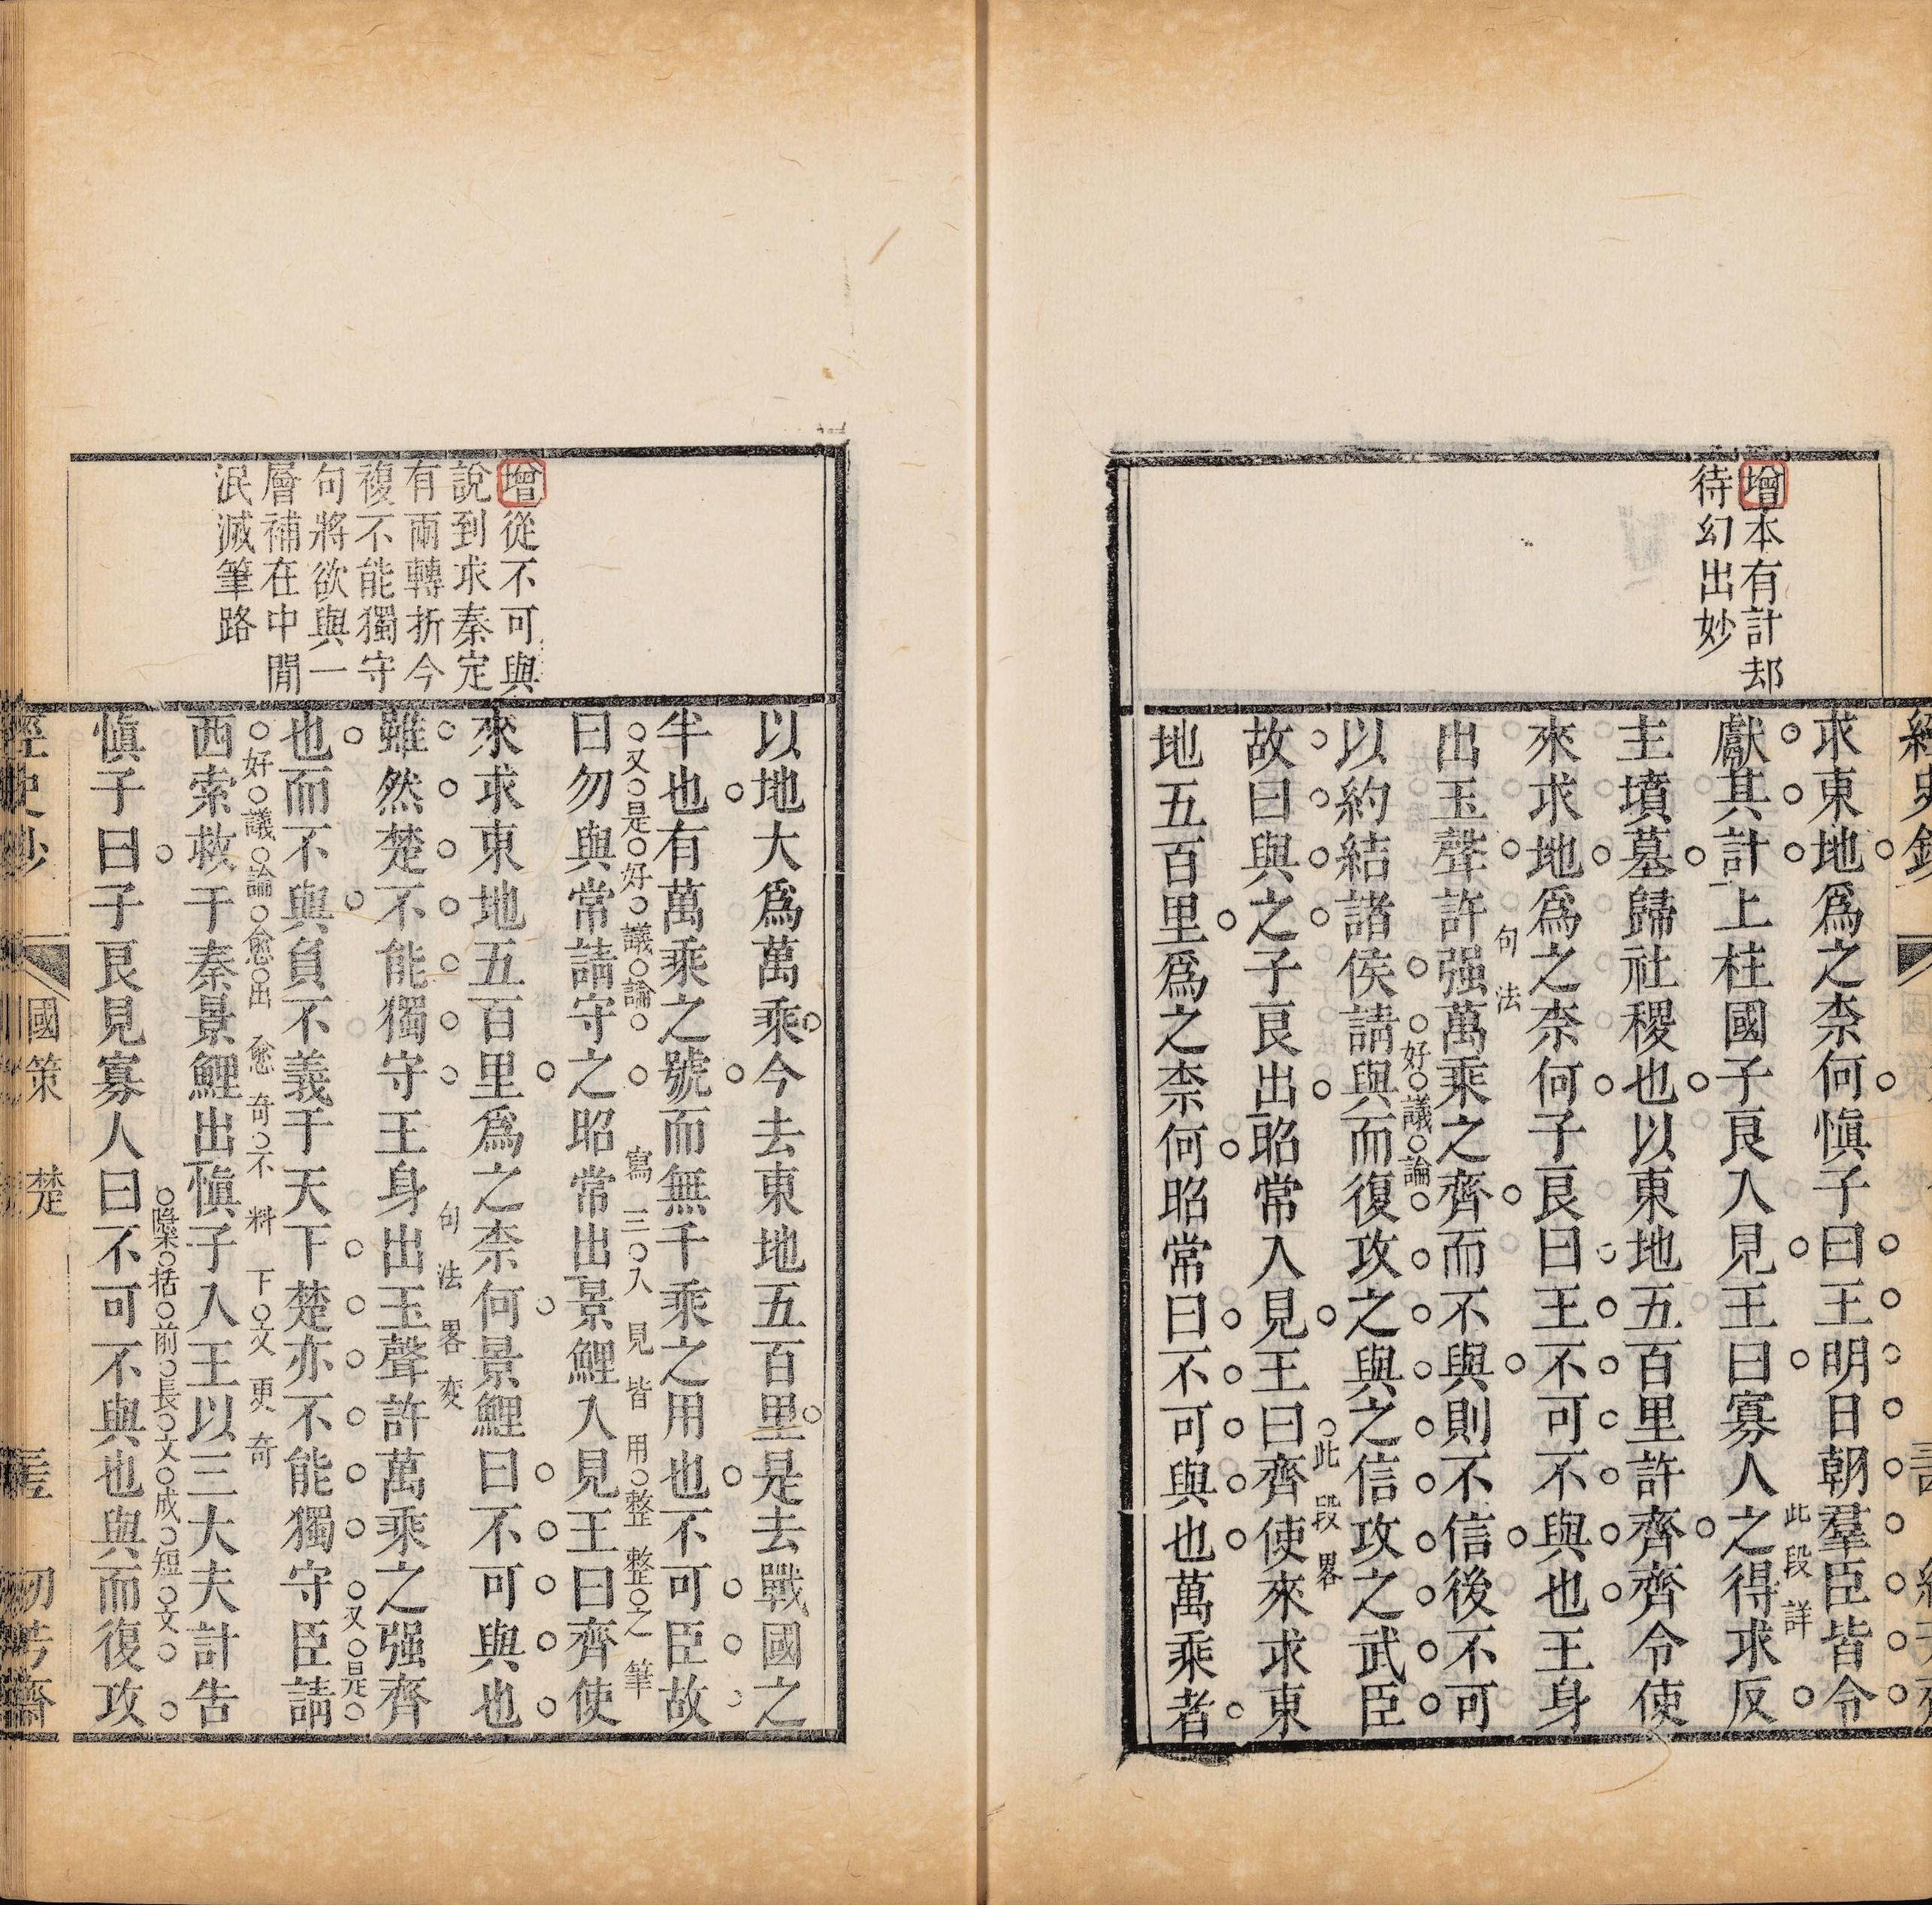 增本有計却
待幻出妙
求東地爲之柰何愼子曰王明日朝羣臣皆令
獻其計上柱國子良入見王曰寡人之得求反
此段詳
主墳墓歸社稷也以東地五百里許齊齊令使
來求地爲之柰何子良曰王不可不與也王身
出玉聲許强萬乘之齊而不與則不信後不可
句法
以約結諸侯請與而復攻之與之信攻之武臣
好議論
故曰與之子良出昭常入見王曰齊使來求東
此段畧
地五百里爲之柰何昭常曰不可與也萬乘者
增從不可與
說到求秦定
有兩轉折今
複不能獨守
句將欲與一
層補在中間
泯滅筆路
以地大爲萬乘今去東地五百里是去戰國之
半也有萬乘之號而無千乘之用也不可臣故
又是好議論
寫三入見皆用整整之筆
曰勿與常請守之昭常出景鯉入見王曰齊使
來求東地五百里爲之柰何景鯉曰不可與也
句法畧変
雖然楚不能獨守王身出玉聲許萬乘之强齊
又是
也而不與負不義于天下楚亦不能獨守臣請
好議論愈出愈奇不料下文更奇
西索救于秦景鯉出愼子入王以三大夫計告
隱括前長文成短文
愼子曰子良見寡人曰不可不與也與而復攻
國策 楚